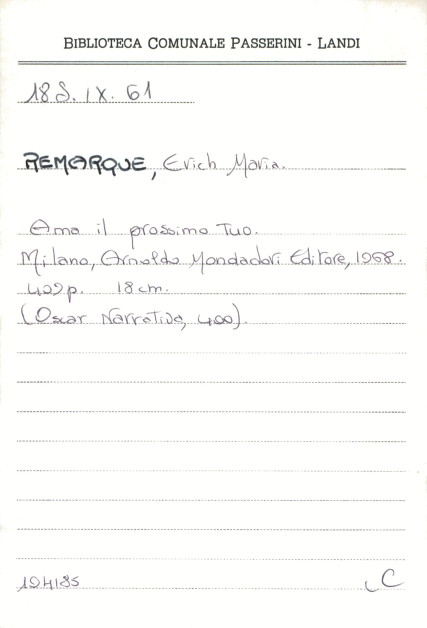 BIBLIOTECA COMUNALE PASSERINI - LANDI
18S.IX. 61
REMARQUE, Erich Maria.
Ama il prossimo Tuo.
Milano, Arnoldo Mondadori Editore, 1968.
409p. 18cm.
(Oscar Narrativa, 400).
194185
C